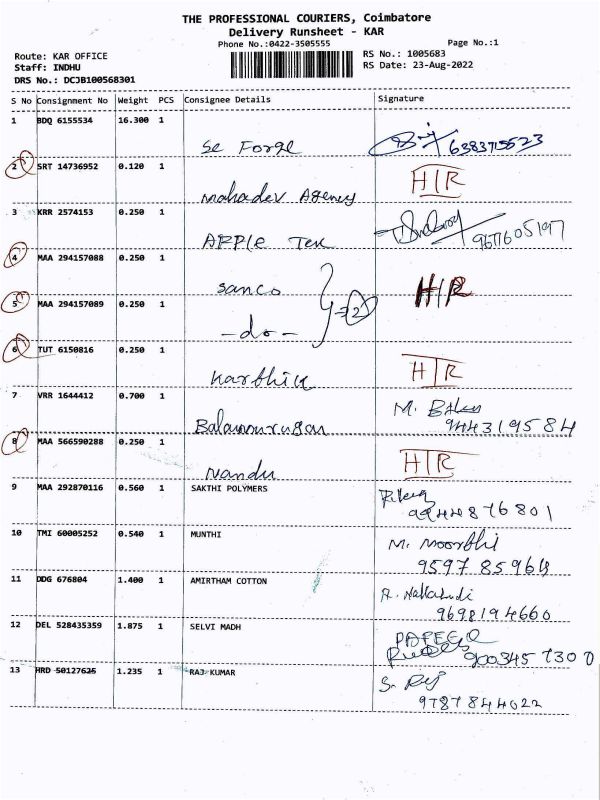 THE PROFESSIONAL COURIERS, Coimbatore
Delivery Runsheet - KAR
Phone No.:0422-3505555 Page No.:1
Route: KAR OFFICE RS No.: 1005683
Staff: INDHU RS Date: 23-Aug-2022
DRS No.: DCJB100568301
S No Consignment No Weight PCS Consignee Details Signature
1 BDQ 6155534 16.300 1
Se Forge 6383715523
2 SRT 14736952 0.120 1 H/R
Mahadev Agency
3 KRR 2574153 0.250 1
APPle Tek 9677605197
4 MAA 294157088 0.250 1
Sanco H/R
5 MAA 294157089 0.250 1 =2
-do-
6 TUT 6150816 0.250 1
Karthik H/R
7 VRR 1644412 0.700 1 M.
Balamurugan 9443195 84
8 MAA 566590288 0.250 1 H/R
Nandu
9 MAA 292870116 0.560 1 SAKTHI POLYMERS
9244876801
10 TMI 60005252 0.540 1 MUNTHI M. Moorthi
9597 85964
11 DDG 676804 1.400 1 AMIRTHAM COTTON
9698194660
12 DEL 528435359 1.875 1 SELVI MADH
900345 7300
13 HRD 50127625 1.235 1 RAJ KUMAR S. Raj
9787844022